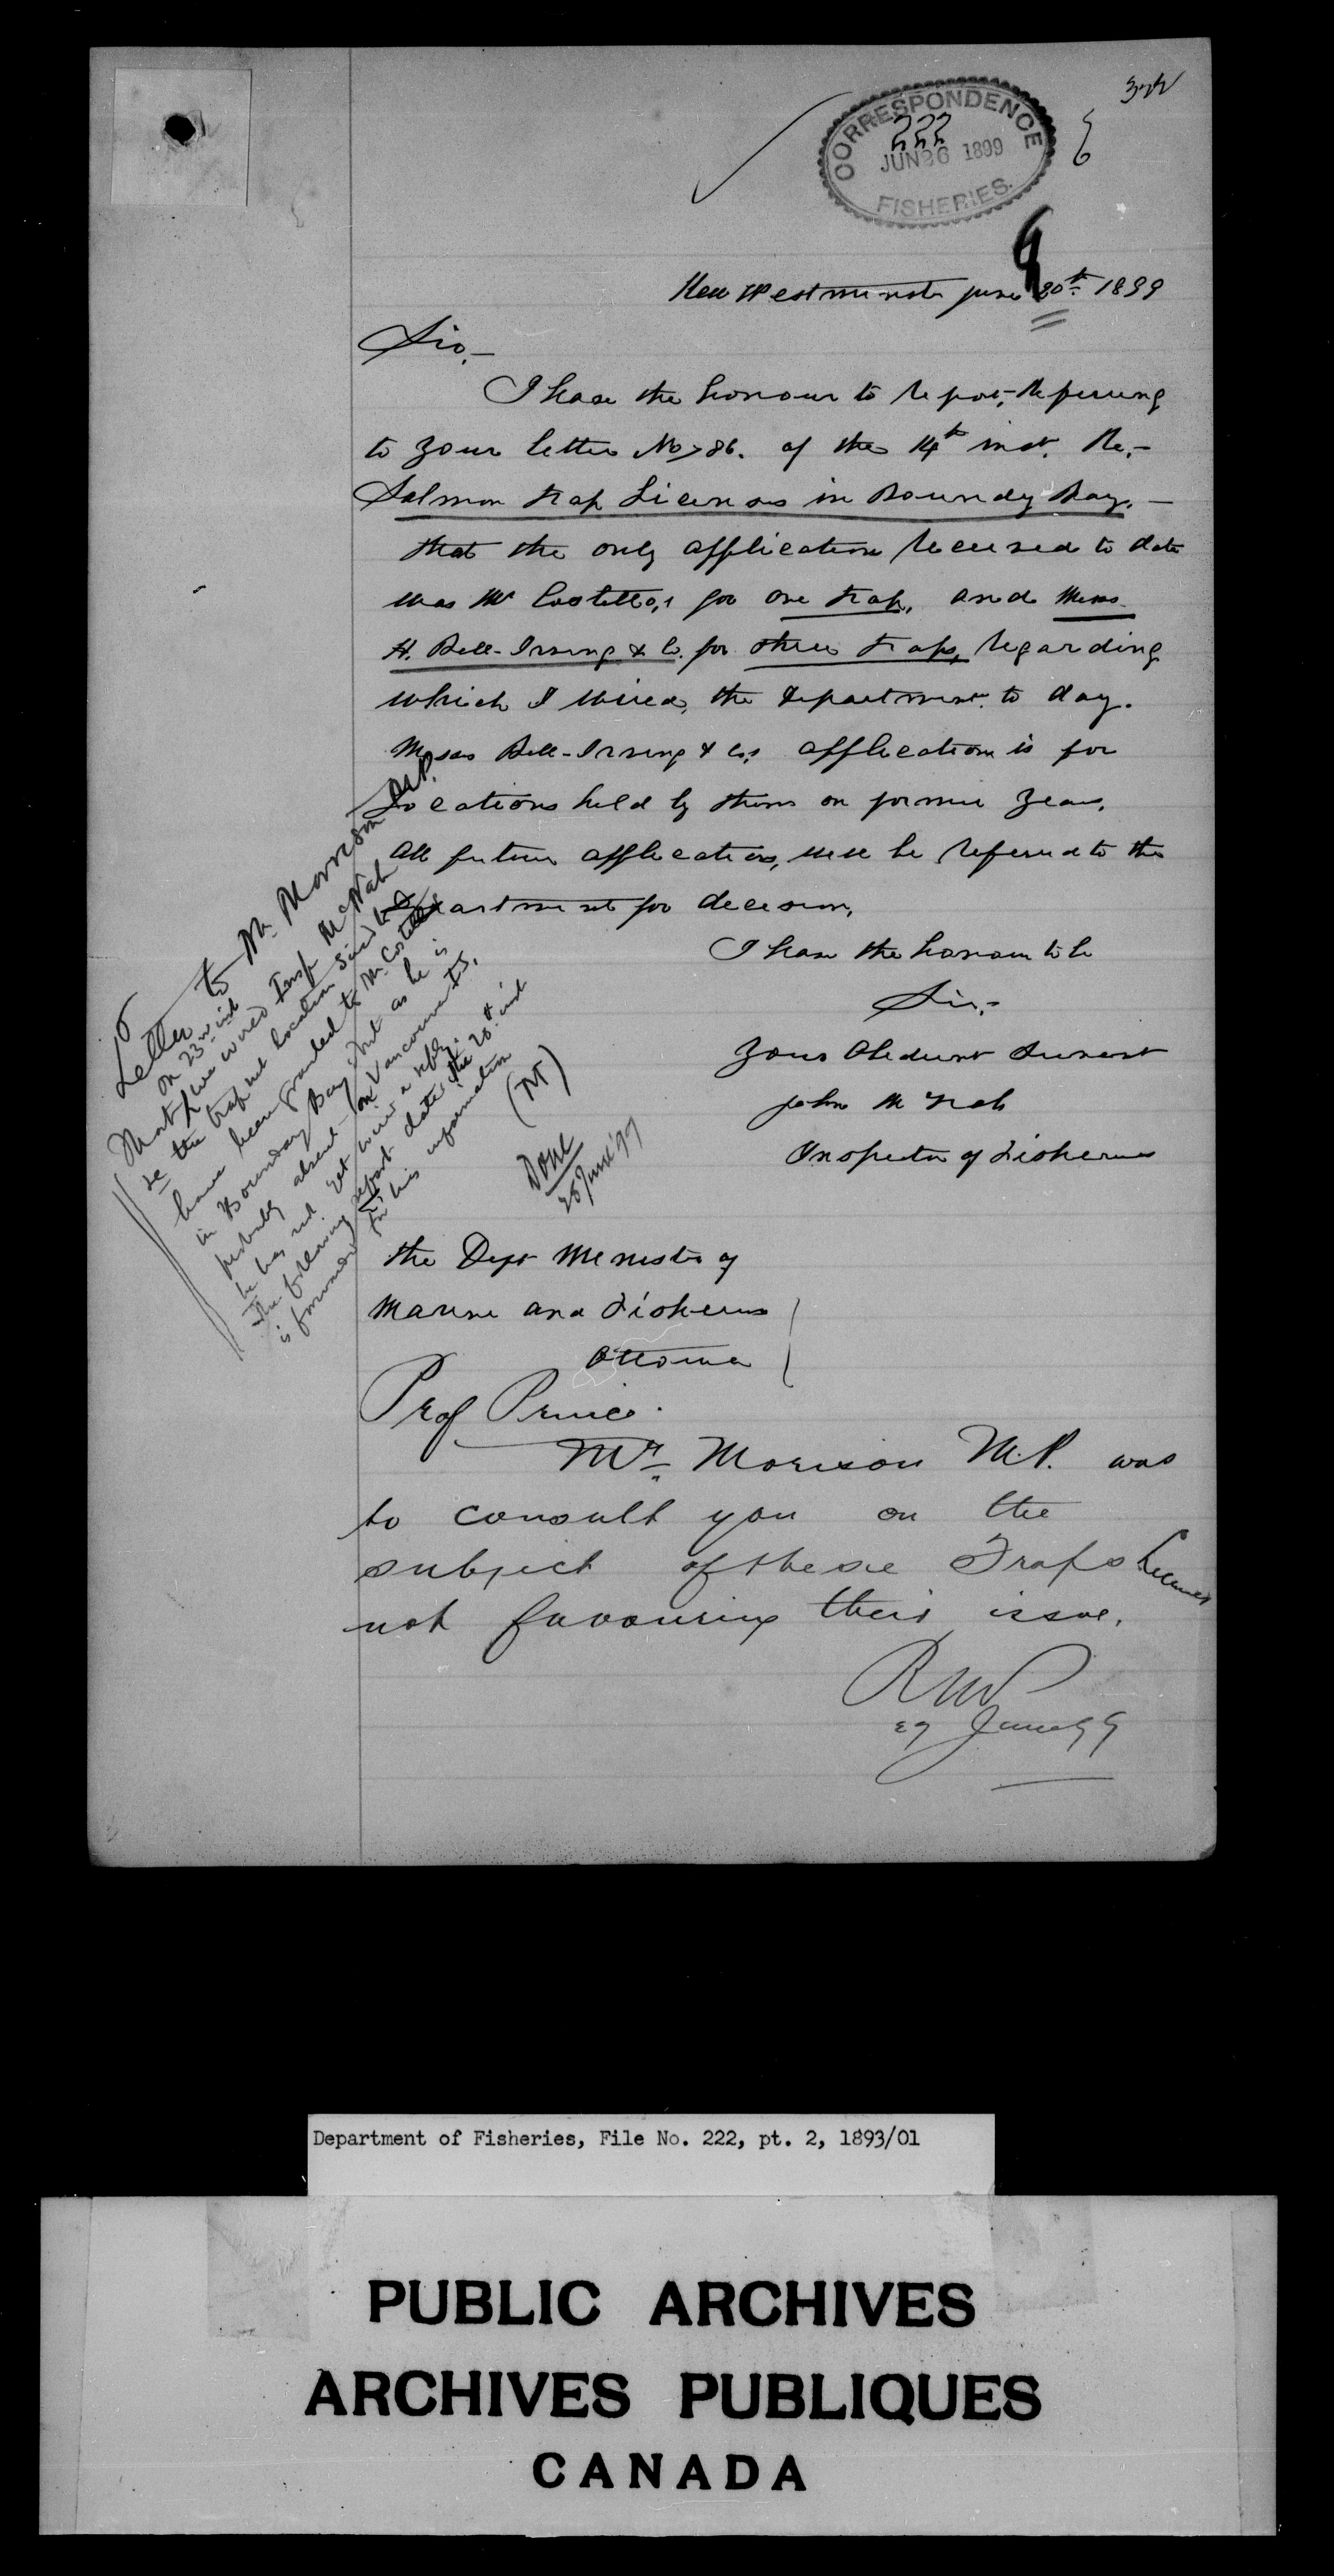 CORRESPONDENCE
222
JUN 26 1899
FISHERIES.
New Westminster June 20th 1899
Sir,-
I have the honour to report, Referring
to your letter No 786. of the 14th inst. Re,-
Salmon trap Licenses in Boundy Bay. -
that the only application received to date
was Mr Costello,s for one trap, and Mess
H. Bell-Irving & Co. for three traps, regarding
which I wired, the Department to day.
Messrs Bell-Irving & Co,s application is for
Locations held by them on former years.
All future applications, will be referred to the
Department for decision,
I have the honour to be
Sir,-
Your Obedient Servant
John McNab
Inspector of Fisheries
the Dept Minister of
Marine and Fisheries
Ottawa
Letter to Mr Morrison M.P.
on 23rd inst
That I have wired Insp McNab
re the trap net location said to
have been granted to Mr Costello
in Boundary Bay, but as he is
probably absent on Vancouver Id,
he has not yet wired a reply.
The following report date the 20th inst
is forwarded for his information
(M)
Done
26 June '99
Prof Prince.
Mr. Morrison M.P. was
to consult you on the
subject of these Traps Licenses
not favouring their issue.
RNV
29 June 99
Department of Fisheries, File No. 222, pt. 2, 1893/01
PUBLIC ARCHIVES
ARCHIVES PUBLIQUES
CANADA